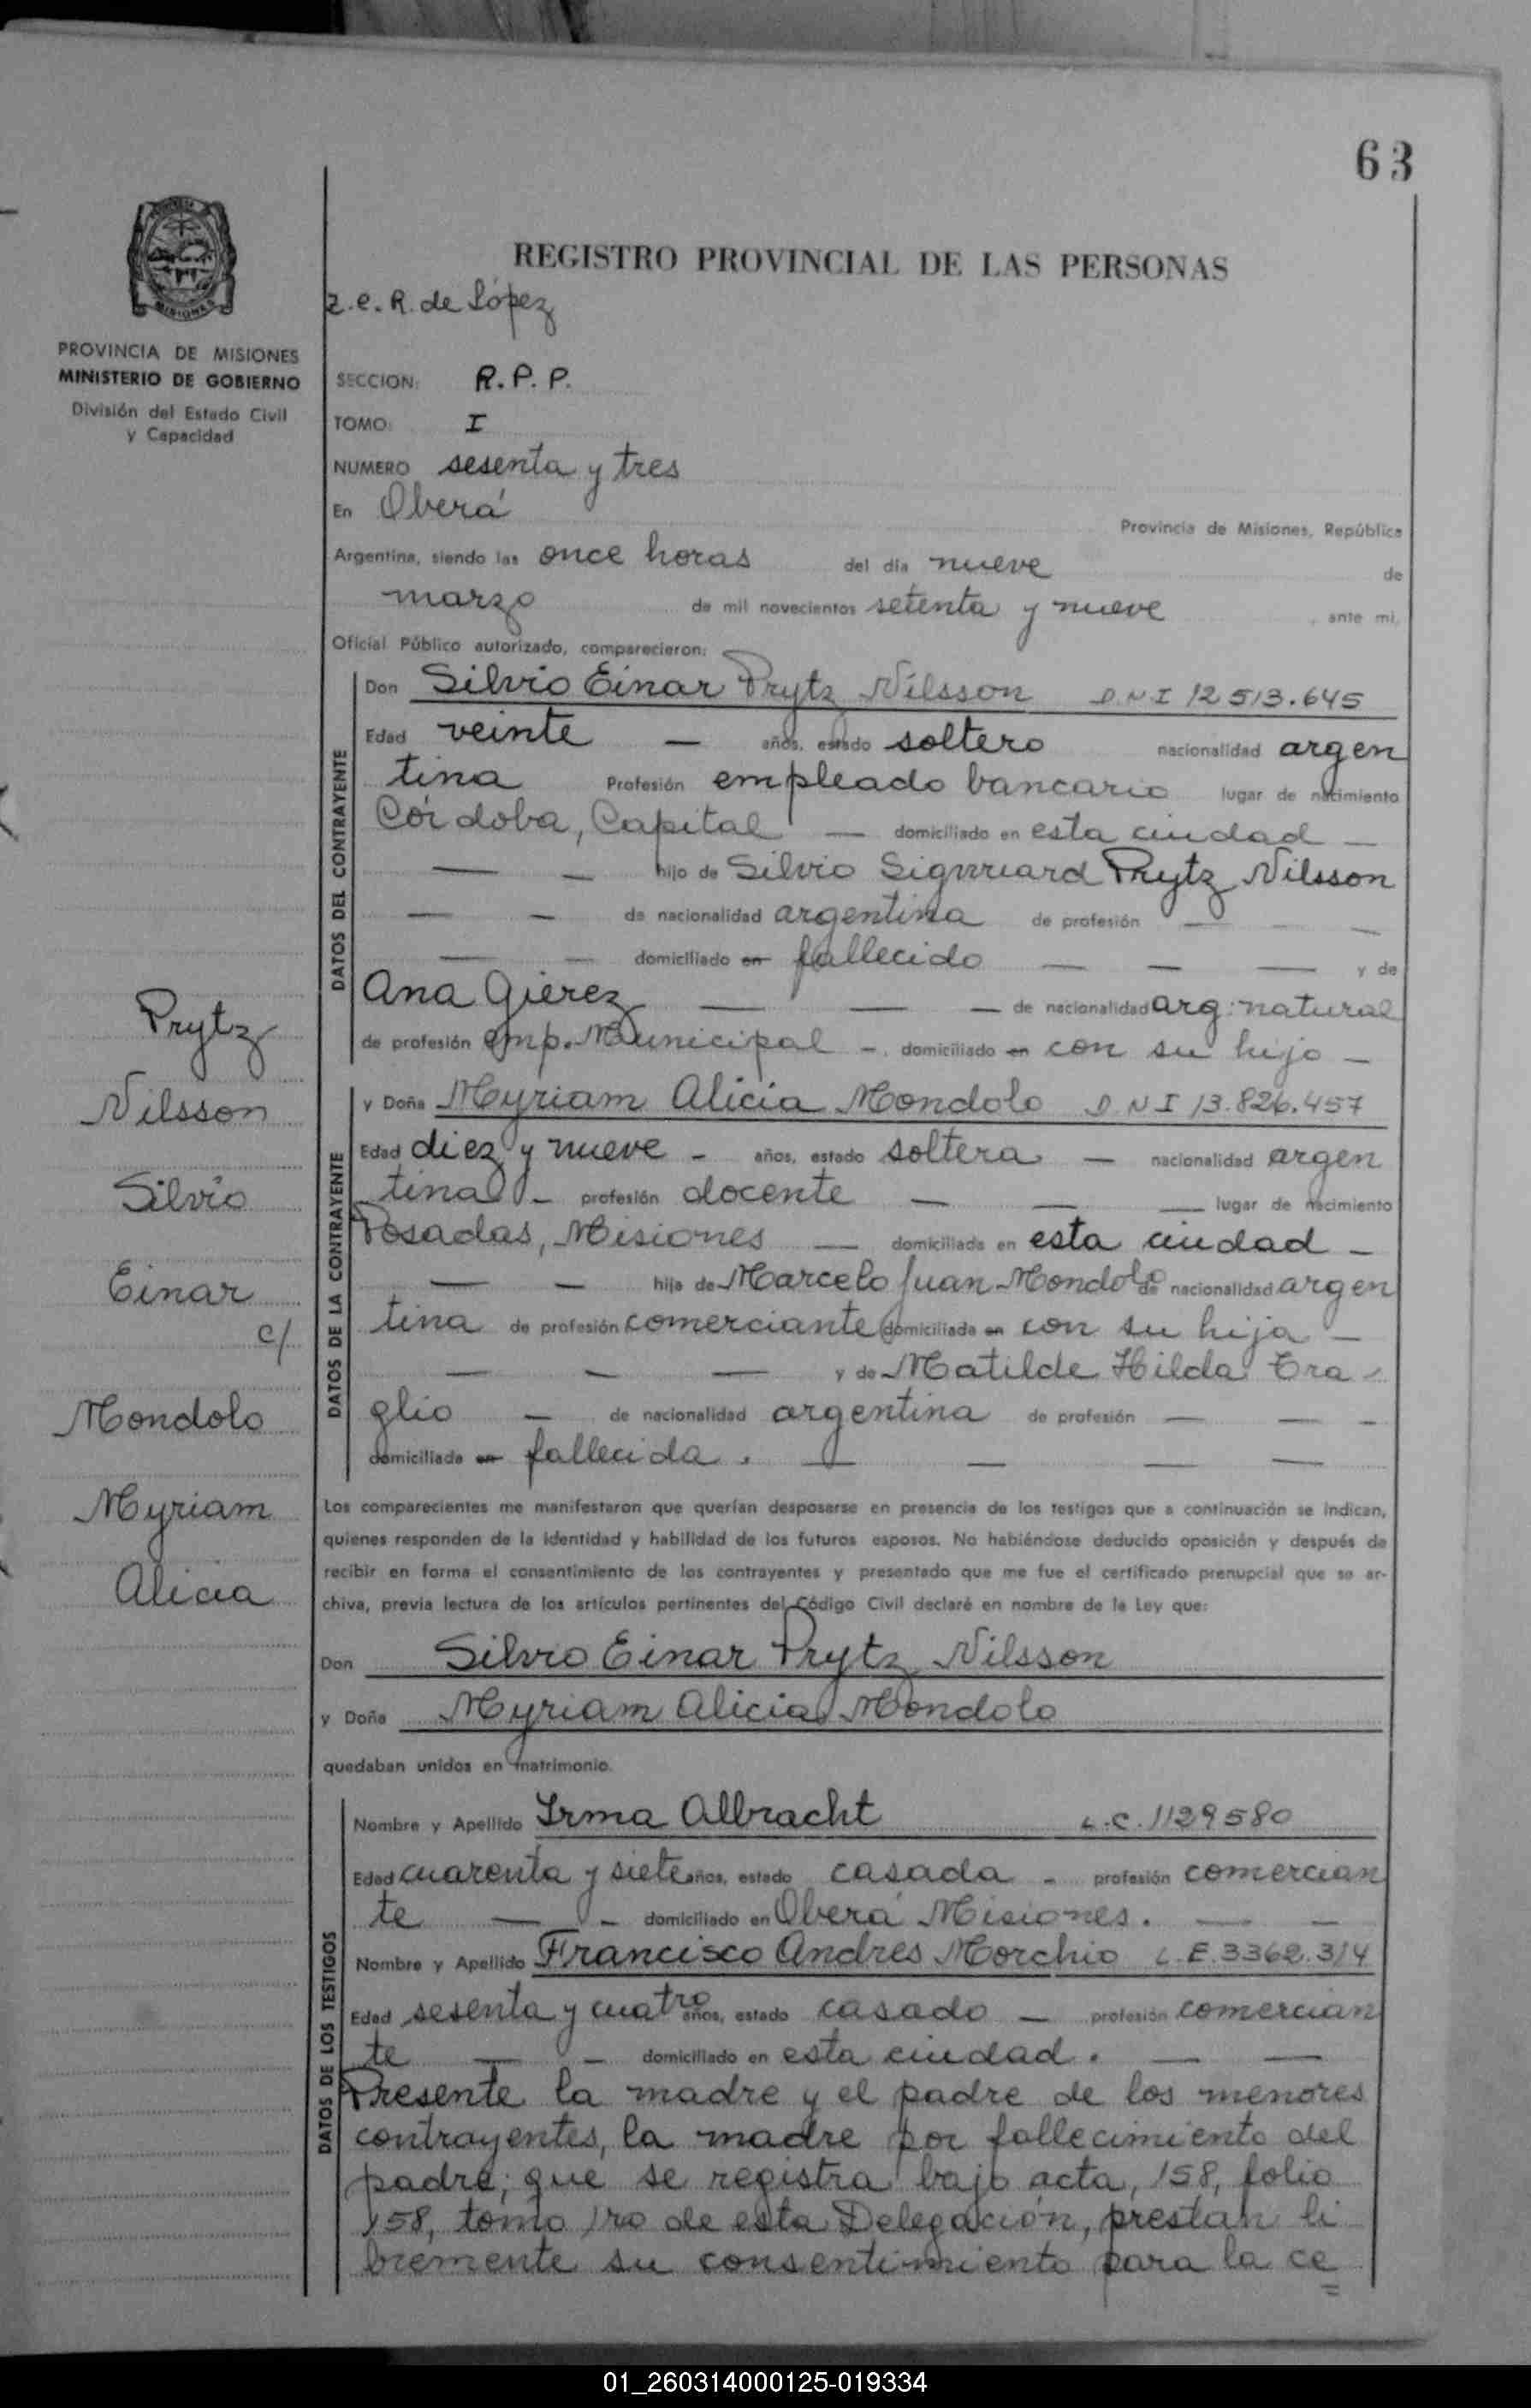 63
REGISTRO PROVINCIAL DE LAS PERSONAS
Z.E.R. de López
PROVINCIA DE MISIONES
MINISTERIO DE GOBIERNO
División del Estado Civil
y Capacidad
SECCION: R.P.P.
TOMO: I
NUMERO sesenta y tres
En Oberá Provincia de Misiones, República
Argentina, siendo las once horas del día nueve de
marzo de mil novecientos setenta y nueve, ante mi,
Oficial Público autorizado, comparecieron:
DATOS DEL CONTRAYENTE
Don Silvio Einar Prytz Nilsson D.N.I 12513.645
Edad veinte — años, estado soltero nacionalidad argen
tina Profesión empleado bancario lugar de nacimiento
Córdoba, Capital — domiciliado en esta ciudad —
— — hijo de Silvio Prytz Nilsson
— — de nacionalidad argentina de profesión — —
— — domiciliado en fallecido — — — y de
Ana Gierez — — — de nacionalidad arg: natural
de profesión emp. Municipal — domiciliado en con su hijo —
DATOS DE LA CONTRAYENTE
y Doña Myriam Alicia Mondolo D.N.I 13.826.457
Edad diez y nueve - años, estado soltera — nacionalidad argen
tina - profesión docente — — — lugar de nacimiento
Posadas, Misiones — domiciliada en esta ciudad —
— — hija de Marcelo Juan Mondolo de nacionalidad argen
tina de profesión comerciante domiciliada en con su hija —
— — — y de Matilde Hilda Tra-
glio — de nacionalidad argentina de profesión — — -
domiciliada en fallecida. — — — —
Los comparecientes me manifestaron que querían desposarse en presencia de los testigos que a continuación se indican,
quienes responden de la identidad y habilidad de los futuros esposos. No habiéndose deducido oposición y después de
recibir en forma el consentimiento de los contrayentes y presentado que me fue el certificado prenupcial que se ar-
chiva, previa lectura de los artículos pertinentes del Código Civil declaré en nombre de la Ley que:
Don Silvio Einar Prytz Nilsson
y Doña Myriam Alicia Mondolo
quedaban unidos en matrimonio.
DATOS DE LOS TESTIGOS
Nombre y Apellido Irma Albracht L.C. 1129580
Edad cuarenta y siete años, estado casada - profesión comercian
te — - domiciliado en Oberá Misiones. — —
Nombre y Apellido Francisco Andres Morchio L.E. 3362.314
Edad sesenta y cuatro años, estado casado — profesión comercian
te — - domiciliado en esta ciudad. — —
Presente la madre y el padre de los menores
contrayentes, la madre por fallecimiento del
padre; que se registra bajo acta, 158, folio
158, tomo 1ro de esta Delegación, prestan li
bremente su consentimiento para la ce
=
Prytz
Nilsson
Silvio
Einar
c/
Mondolo
Myriam
Alicia
01_260314000125-019334